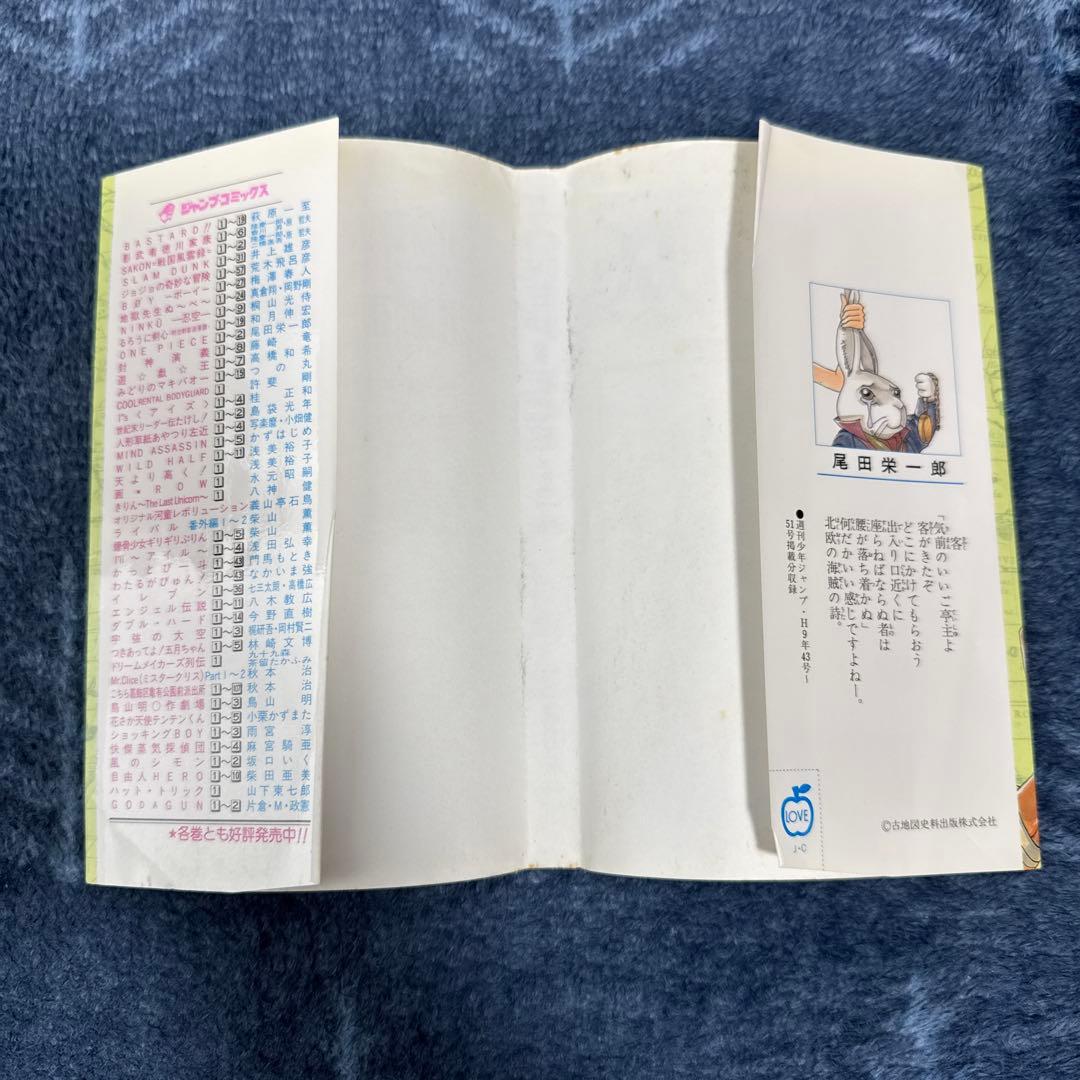 ジャンプ・コミックス
BASTARD!! 1~18 萩原一至
影武者徳川家康 1~6
SAKON-戦国風雲録- 1~2
SLAM DUNK 1~31 井上雄彦
ジョジョの奇妙な冒険 荒木飛呂彦
BØY―ボーイ― 梅澤春人
地獄先生ぬ~べ~ 真倉翔・岡野剛
NINKU―忍空― 1~9 桐山光侍
るろうに剣心 1~19 和月伸宏
ONE PIECE 1~2 尾田栄一郎
封神演義 1~8 藤崎竜
遊☆戯☆王 1~7 高橋和希
みどりのマキバオー 1~15 つの丸
COOL RENTAL BODYGUARD 1 許斐剛
I"s〈アイズ〉 1~4 桂正和
世紀末リーダー伝たけし! 1~2 島袋光年
人形草紙あやつり左近 1~4 写楽麿・小畑健
MIND ASSASSIN 1~5 かずはじめ
WILD HALF 1~11 浅美裕子
天より高く! 1 浅美裕子
画・ROW 1 水元昭嗣
きりん~The Last Unicorn~ 1 八神健
オリジナル河童レボリューション 義山亭石鳥
ライバル 番外編1~2 柴山薫
爆骨少女ギリギリぷりん 1~5 柴山薫
I'll~アイル~ 1~4 浅田弘幸
かっとび一斗 門馬もとき
わたるがぴゅん! 1~43 なかいま強
イレブン 七三太朗・高橋広
エンジェル伝説 1~11 八木教広
ダブル・ハード 1~14 今野直樹
宇強の大空 1~3 梶研吾・岡村賢二
つきあってよ!五月ちゃん 1~5 林崎文博
ドリームメイカーズ列伝 1 九十九森 茶留たかふみ
Mr.Clice(ミスタークリス) Part 1~2 秋本治
こちら葛飾区亀有公園前派出所 秋本治
鳥山明○作劇場 1~3 鳥山明
花さか天使テンテンくん 1~5 小栗かずまた
ショッキングBOY 1~3 雨宮淳
快傑蒸気探偵団 1~4 麻宮騎亜
風のシモン 1~2 坂口いく
自由人HERO 1~10 柴田亜美
ハット・トリック 1 山下東七郎
GODAGUN 1~2 片倉・M・政憲
★各巻とも好評発売中!!
尾田栄一郎
「気前のいいご亭主よ
客がきたぞ
どこにかけてもらおう
出入り口近くに
座らねばならぬ者は
腰が落ち着かぬ」
何だかいい感じですよねー。
北欧の海賊の詩。
●週刊少年ジャンプ・H9年43号~
51号掲載分収録
LOVE
J・C
©古地図史料出版株式会社